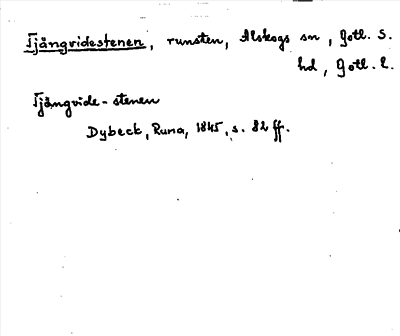 Tjängvidestenen, runsten, Alskogs sn, Gotl. S.
hd, Gotl. l.
Tjängvide-stenen
Dybeck, Runa, 1845, s. 82 ff.